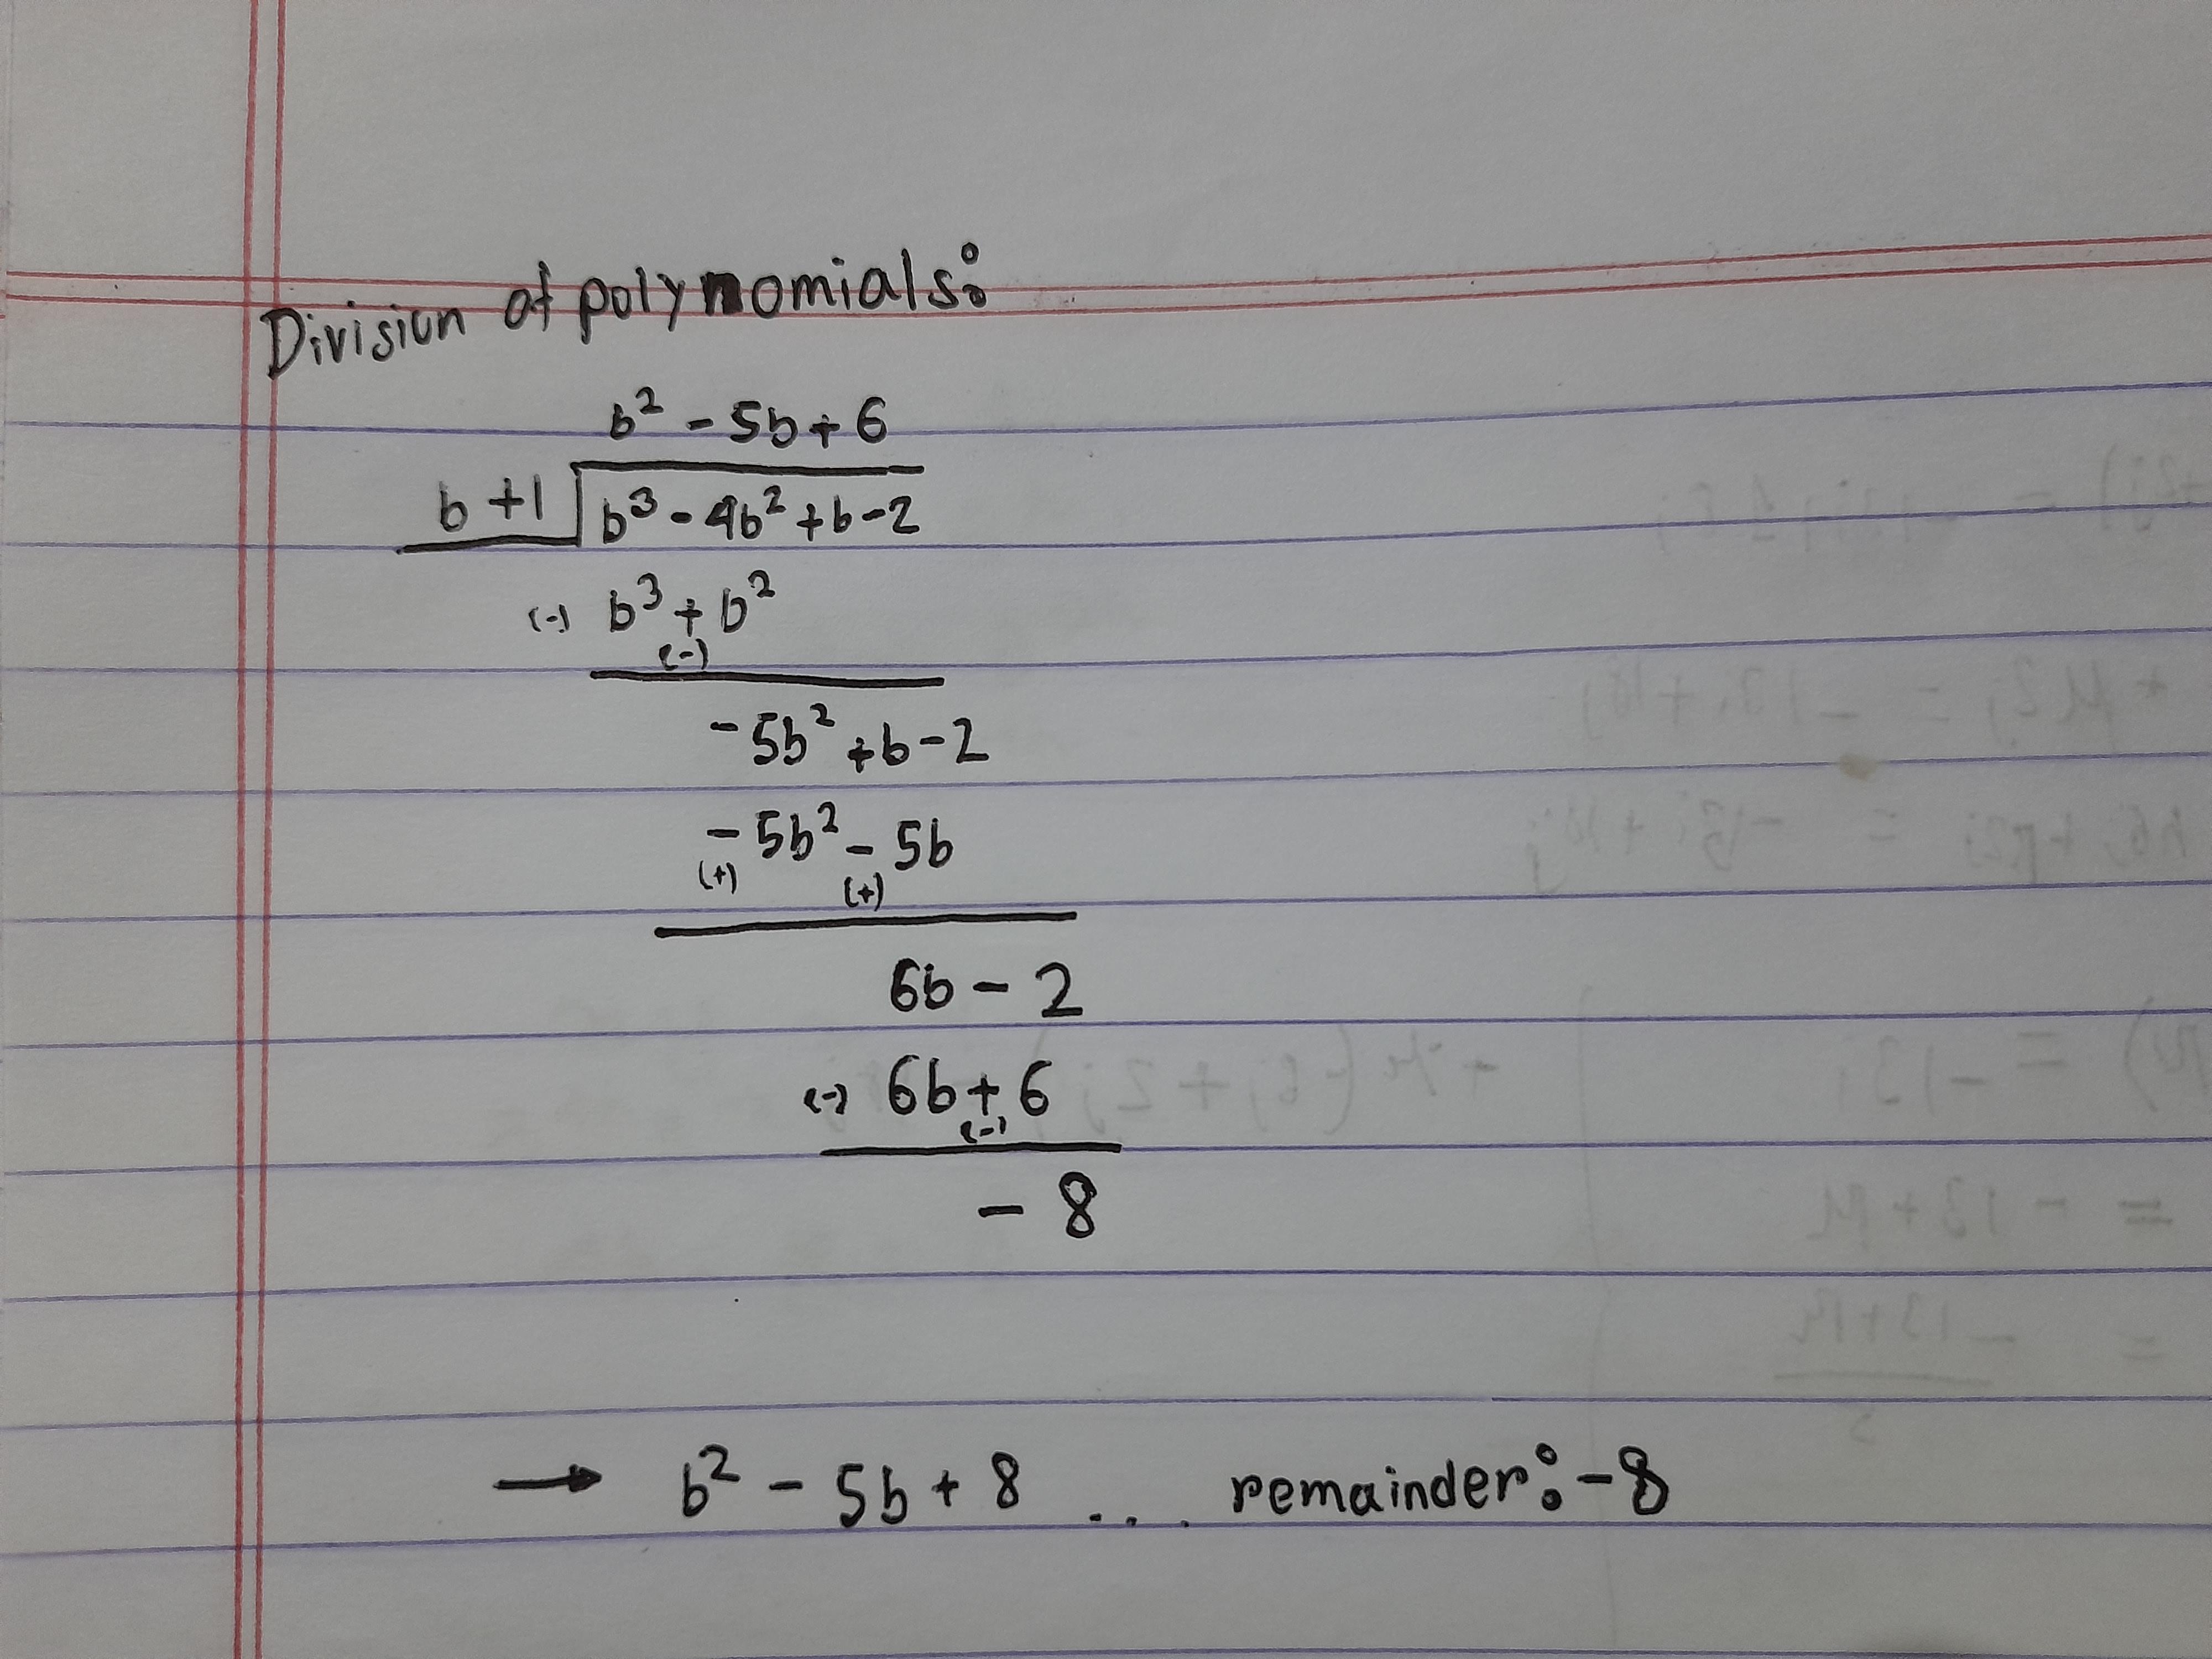 Division of polynomials:
b² - 5b + 6
b + 1 b³ - 4b² + b - 2
(-) b³ + b²
(-)
- 5b² + b - 2
- 5b² - 5b
(+) (+)
6b - 2
(-) 6b + 6
(-)
- 8
→ b² - 5b + 8 .... remainder: - 8